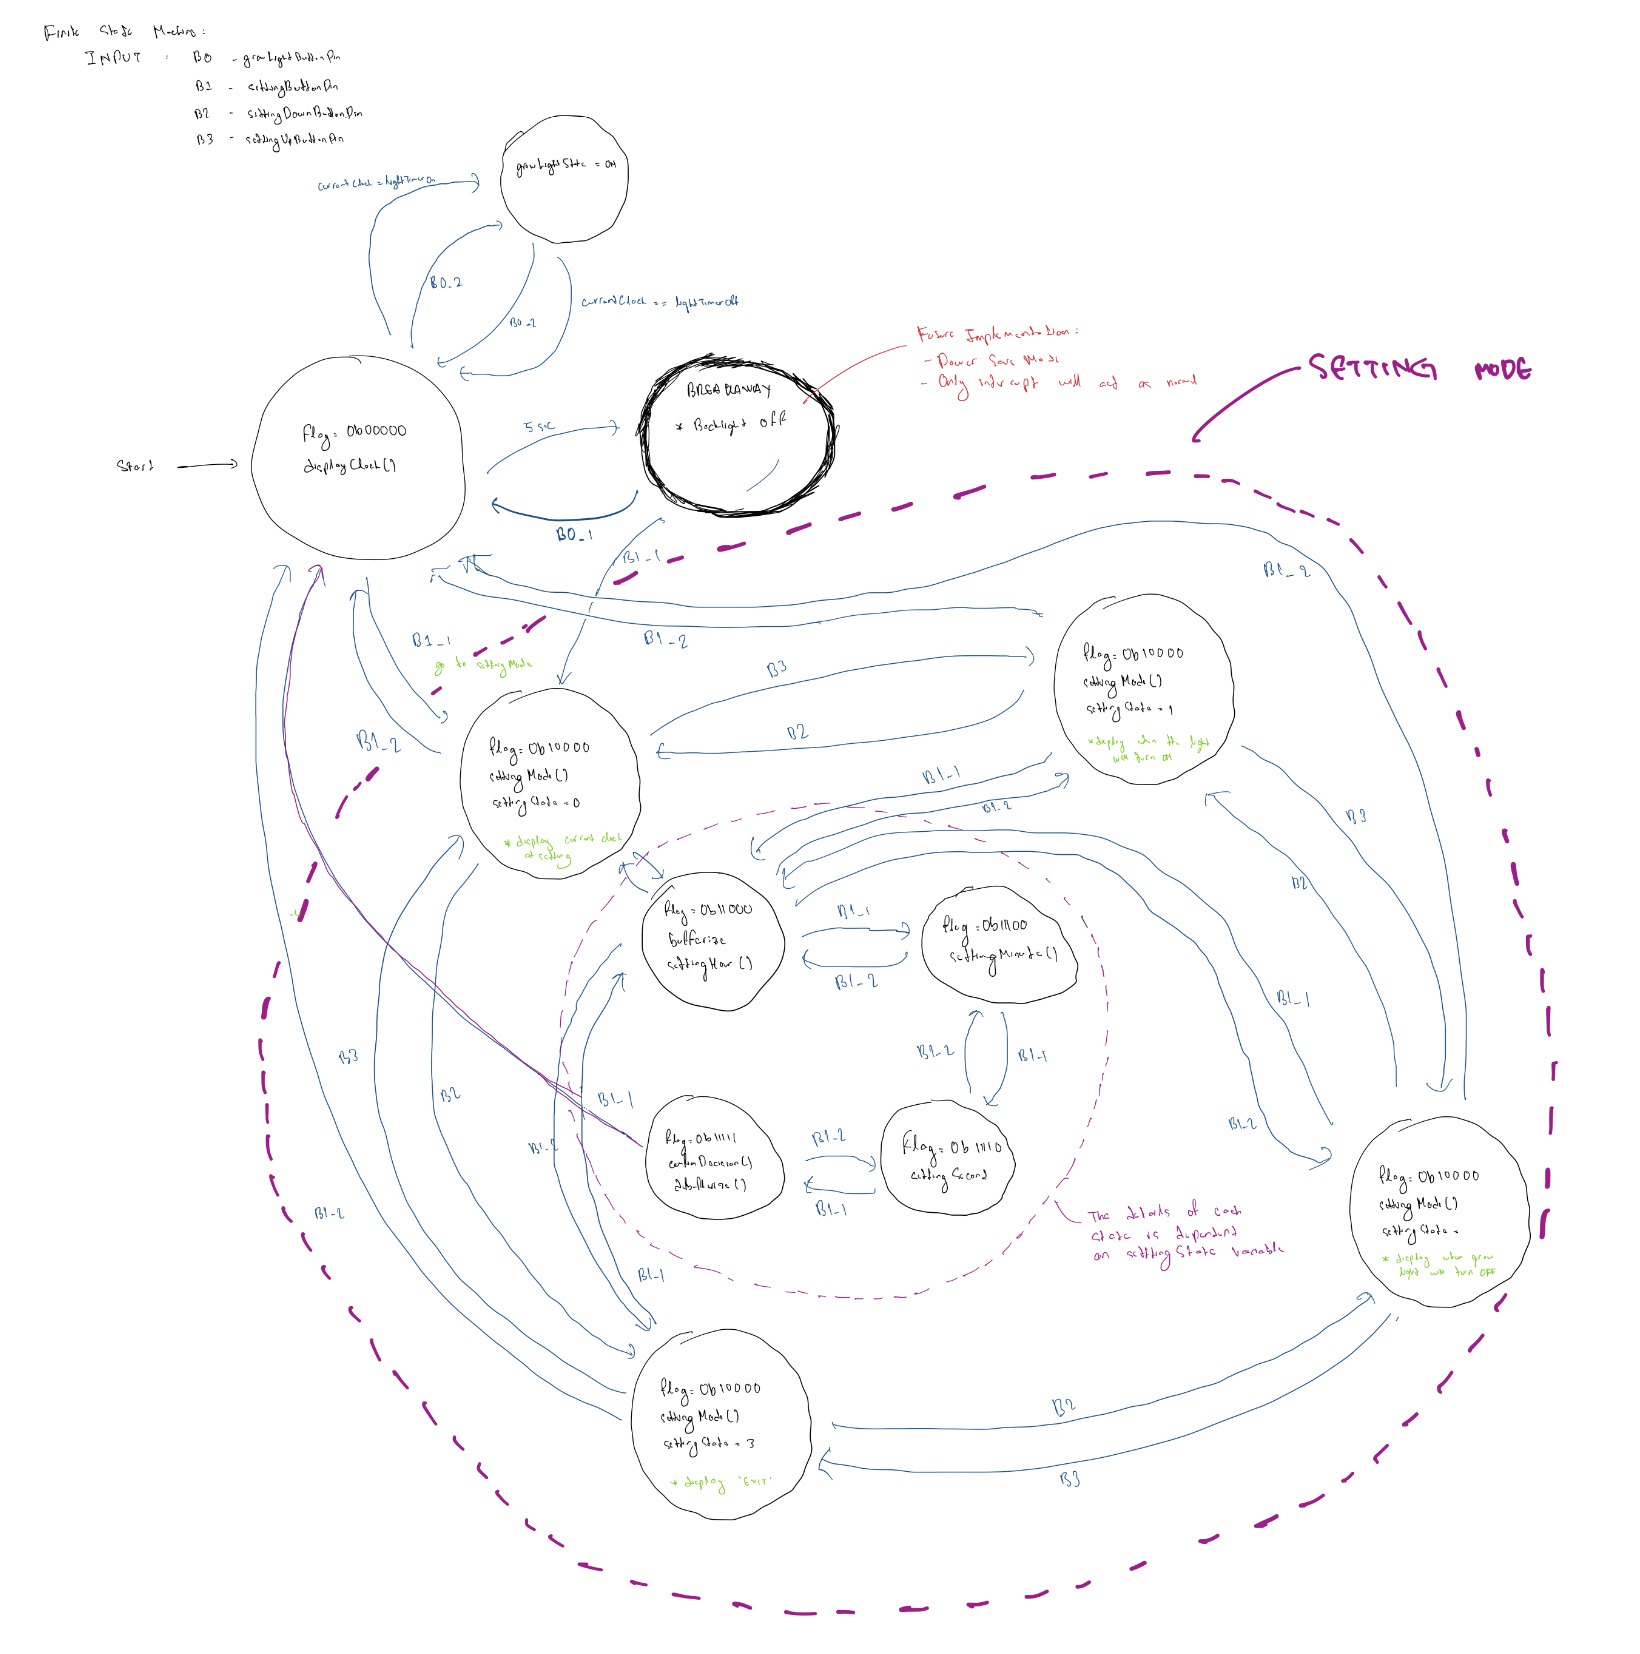 Finite State Machine:
INPUT : B0 - growLightButtonPin
B1 - settingButtonPin
B2 - settingDownButtonPin
B3 - settingUpButtonPin
growLightState = ON
currentClock = lightTimerOn
B0_2
B0_2
currentClock == lightTimerOff
Future Implementation:
- Power Save Mode
- Only interrupt will act as normal
SETTING MODE
Start
flag = 0b00000
displayClock()
5 sec
B0_1
BREAKAWAY
* Backlight off
B1_1
B1_2
B1_2
B1_1
go to settingMode
B1_2
B3
B2
flag = 0b10000
settingMode()
settingState = 1
*display when the light
will turn ON
flag = 0b10000
settingMode()
settingState = 0
* display current clock
at setting
B1_1
B1_2
B3
B2
flag = 0b11000
bufferize
settingHour()
B1_1
B1_2
flag = 0b11100
settingMinute()
B1_2
B1_1
B1_1
B1_2
B3
B2
B1_1
B1_2
flag = 0b11111
confirmDecision()
debufferize()
B1_2
B1_1
flag = 0b11110
settingSecond
B1_2
B1_1
The details of each
state is dependent
on settingState variable
flag = 0b10000
settingMode()
settingState =
* display when grow
light will turn OFF
flag = 0b10000
settingMode()
settingState = 3
* display 'EXIT'
B2
B3